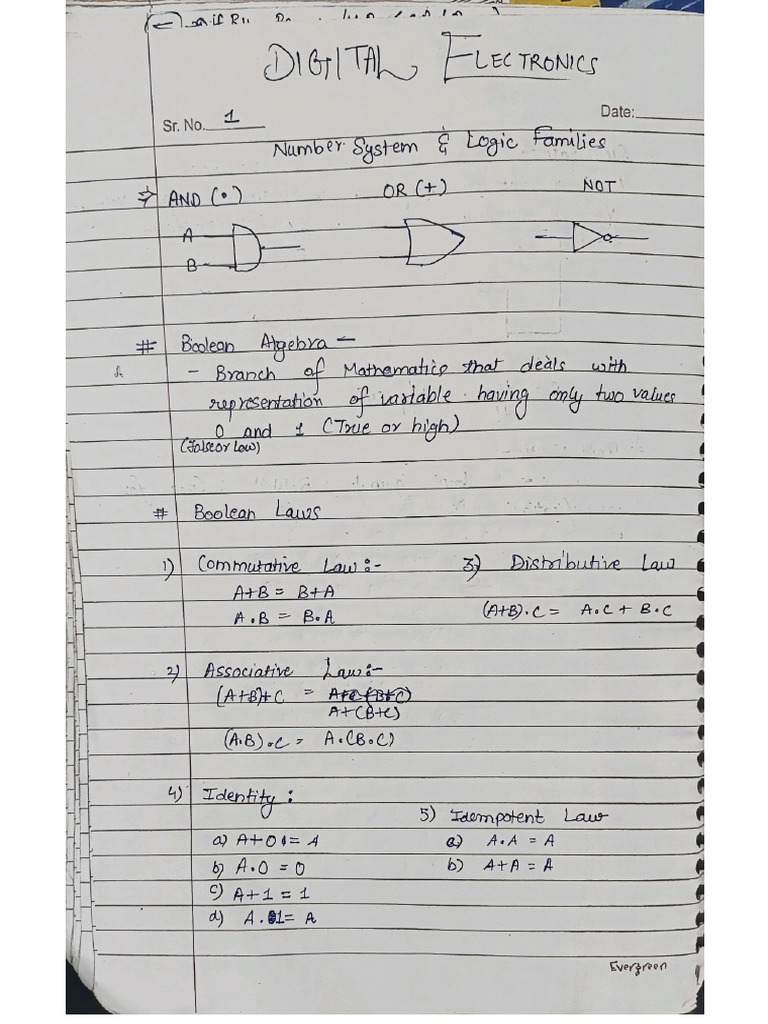 DIGITAL ELECTRONICS
Sr. No. 1
Date:
Number System & Logic Families
⇒ AND (•) OR (+) NOT
A
B
# Boolean Algebra -
- Branch of Mathematics that deals with
representation of variable having only two values
0 and 1 (True or high)
(False or Low)
# Boolean Laws
1) Commutative Law :-
A+B = B+A
A.B = B.A
3) Distributive Law
(A+B).C = A.C + B.C
2) Associative Law :-
(A+B)+C =
A+(B+C)
(A.B).C = A.(B.C)
4) Identity :
a) A+0 = A
b) A.0 = 0
c) A+1 = 1
d) A.1 = A
5) Idempotent Law
a) A.A = A
b) A+A = A
Evergreen